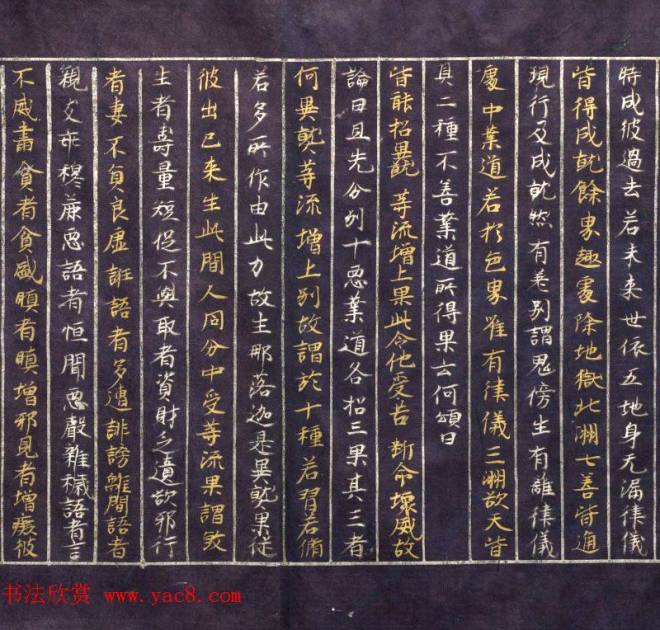 時成彼過去若未來世依五地身无漏律儀
皆得成就餘界趣處除地獄北洲七善皆通
現行及成就然有差別謂鬼傍生有離律儀
處中業道若於色界唯有律儀三洲欲天皆
具二種不善業道所得果云何頌曰
皆能招異熟 等流增上果此令他受苦 斷命壞威故
論曰且先分別十惡業道各招三果其三者
何異熟等流增上別故謂於十種若習若脩
若多所作由此力故生那落迦是異熟果從
彼出已來生此間人同分中受等流果謂煞
生者壽量短促不與取者資財乏遺欲邪行
者妻不貞良虛誑語者多遭誹謗離間語者
親友乖穆麁惡語者恒聞惡聲雜穢語者言
不威肅貪者貪盛瞋者瞋增邪見者增癡彼
书法欣赏 www.yac8.com